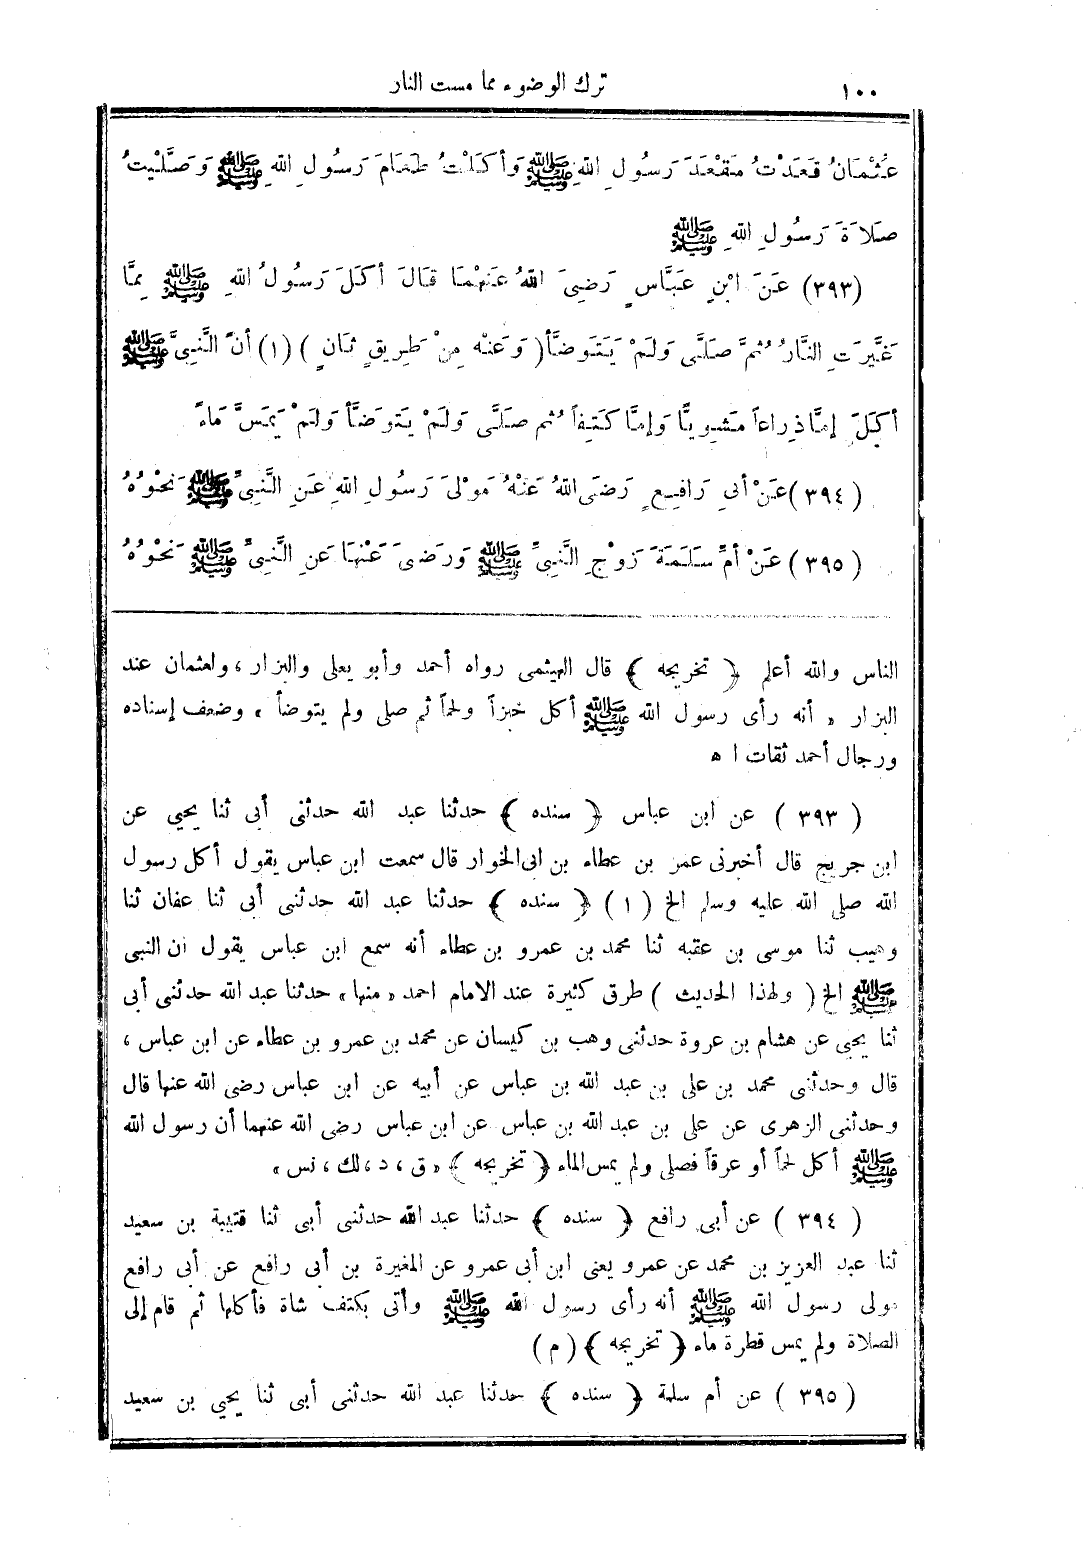 ١٠٠
ترك الوضوء مما مست النار
عُثْمَانُ قَعَدْتُ مَقْعَدَ رَسُولِ اللهِ ﷺ وَأَكَلْتُ طَعَامَ رَسُولِ اللهِ ﷺ وَصَلَّيْتُ
صَلَاةَ رَسُولِ اللهِ ﷺ
(٣٩٣) عَنِ ابْنِ عَبَّاسٍ رَضِيَ اللهُ عَنْهُمَا قَالَ أَكَلَ رَسُولُ اللهِ ﷺ مِمَّا
غَيَّرَتِ النَّارُ ثُمَّ صَلَّى وَلَمْ يَتَوَضَّأْ (وَعَنْهُ مِنْ طَرِيقٍ ثَانٍ) (١) أَنَّ النَّبِيَّ ﷺ
أَكَلَ إِمَّا ذِرَاعاً مَشْوِيًّا وَإِمَّا كَتِفاً ثُمَّ صَلَّى وَلَمْ يَتَوَضَّأْ وَلَمْ يَمَسَّ مَاءً
(٣٩٤) عَنْ أَبِي رَافِعٍ رَضَى اللهُ عَنْهُ مَوْلَى رَسُولِ اللهِ عَنِ النَّبِيِّ ﷺ نَحْوُهُ
(٣٩٥) عَنْ أُمِّ سَلَمَةَ زَوْجِ النَّبِيِّ ﷺ وَرَضَى عَنْهَا عَنِ النَّبِيِّ ﷺ نَحْوُهُ
الناس والله أعلم ﴿ تخريجه ﴾ قال الهيثمى رواه أحمد وأبو يعلى والبزار ، ولعثمان عند
البزار « أنه رأى رسول الله ﷺ أكل خبزاً ولحماً ثم صلى ولم يتوضأ » وضعف إسناده
ورجال أحمد ثقات ا ه
(٣٩٣) عن ابن عباس ﴿ سنده ﴾ حدثنا عبد الله حدثنى أبى ثنا يحيى عن
ابن جريج قال أخبرنى عمر بن عطاء بن ابى الخوار قال سمعت ابن عباس يقول أكل رسول
الله صلى الله عليه وسلم الخ (١) ﴿ سنده ﴾ حدثنا عبد الله حدثنى أبى ثنا عفان ثنا
وهيب ثنا موسى بن عقبه ثنا محمد بن عمرو بن عطاء أنه سمع ابن عباس يقول ان النبى
ﷺ الخ (ولهذا الحديث) طرق كثيرة عند الامام احمد « منها » حدثنا عبد الله حدثنى أبى
ثنا يحيى عن هشام بن عروة حدثنى وهب بن كيسان عن محمد بن عمرو بن عطاء عن ابن عباس ،
قال وحدثنى محمد بن على بن عبد الله بن عباس عن أبيه عن ابن عباس رضى الله عنها قال
وحدثنى الزهرى عن على بن عبد الله بن عباس عن ابن عباس رضى الله عنهما أن رسول الله
ﷺ أكل لحماً أو عرقاً فصلى ولم يمس الماء ﴿ تخريجه ﴾ « ق ، د ، لك ، نس »
(٣٩٤) عن أبى رافع ﴿ سنده ﴾ حدثنا عبد الله حدثنى أبى ثنا قتيبة بن سعيد
ثنا عبد العزيز بن محمد عن عمرو يعنى ابن أبى عمرو عن المغيرة بن أبى رافع عن أبى رافع
مولى رسول الله ﷺ أنه رأى رسول الله ﷺ وأتى بكتف شاة فأكلها ثم قام إلى
الصلاة ولم يمس قطرة ماء ﴿ تخريجه ﴾ (م)
(٣٩٥) عن أم سلمة ﴿ سنده ﴾ حدثنا عبد الله حدثنى أبى ثنا يحيى بن سعيد